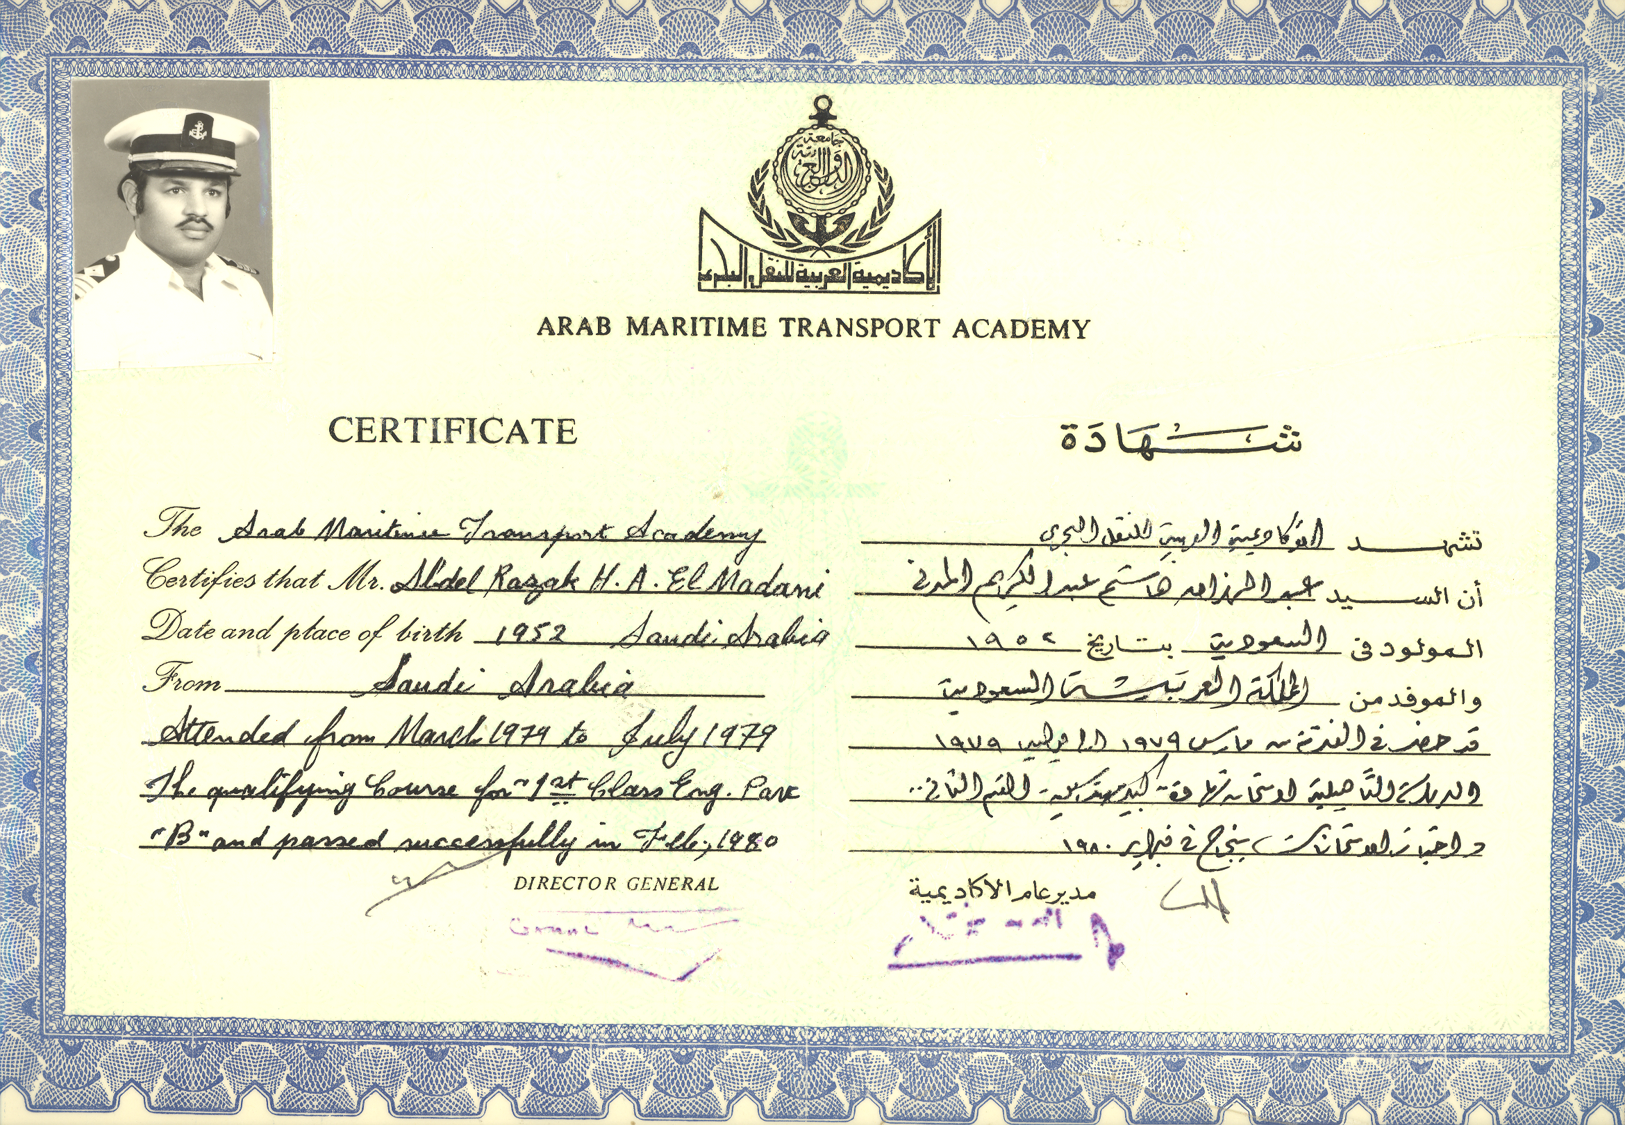 جامعة الدول العربية
الأكاديمية العربية للنقل البحرى
ARAB MARITIME TRANSPORT ACADEMY
CERTIFICATE
The Arab Maritime Transport Academy
Certifies that Mr. Abdel Razak H. A. El Madani
Date and place of birth 1952 Saudi Arabia
From Saudi Arabia
Attended from March 1979 to July 1979
The qualifying Course for "1st Class Eng. Part
"B" and passed successfully in Feb, 1980
DIRECTOR GENERAL
شهادة
تشهد الاكاديمية العربية للنقل البحرى
أن السيد عبد الرزاق هاشم عبد الكريم المدنى
المولود فى السعودية بتاريخ ١٩٥٢
والموفد من المملكة العربية السعودية
قد حضر فى الفترة من مارس ١٩٧٩ الى يوليو ١٩٧٩
الدراسة التأهيلية لامتحان شهادة كبير مهندسين القسم الثانى
و اجتاز الامتحانات بنجاح فى فبراير ١٩٨٠
مدير عام الاكاديمية